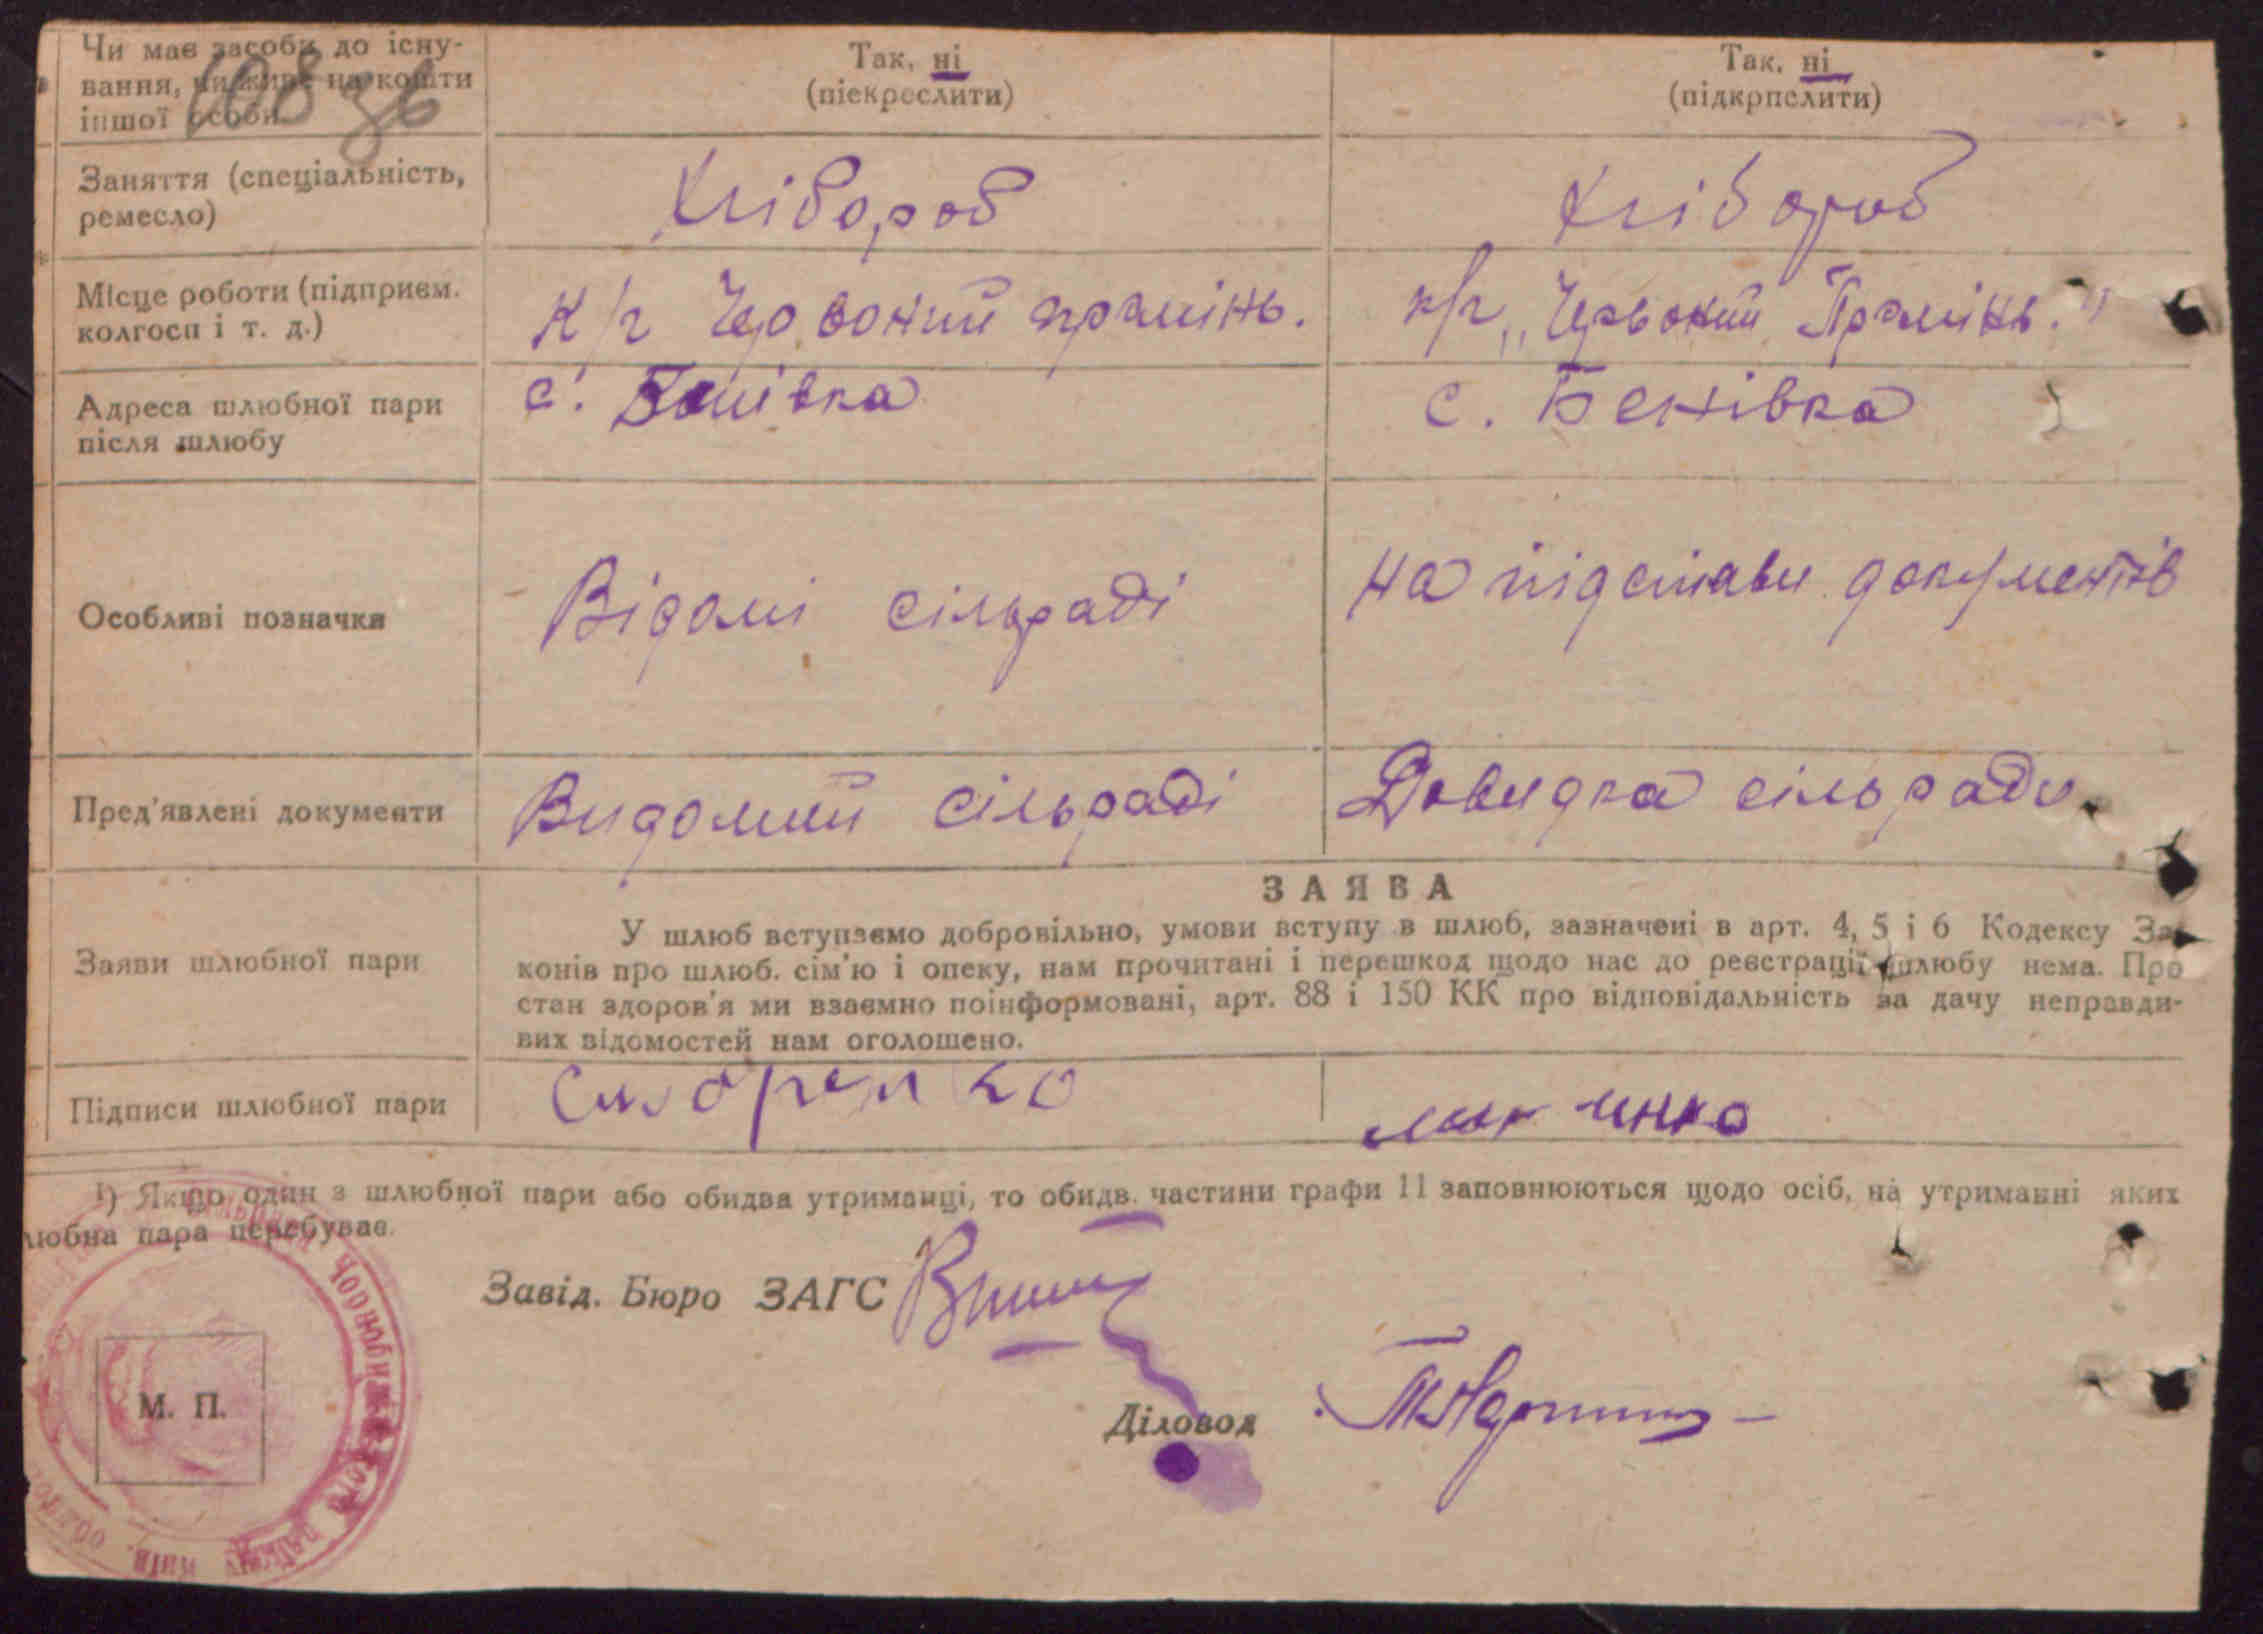 Чи має засоби до існу-
вання, чи живе на кошти
іншої особи
108 зв
Так, ні
(піекреслити)
Так, ні
(підкрпслити)
Заняття (спеціальність,
ремесло)
Хлібороб
Хлібороб
Місце роботи (підприєм.
колгосп і т. д.)
к/г Червоний промінь.
к/г „Червоний Промінь."
Адреса шлюбної пари
після шлюбу
с.
с. Бенівка
Особливі позначки
Відомі сільраді
на підстави документів
Пред'явлені документи
Видомий сільраді
Довидка сільради
Заяви шлюбної пари
ЗАЯВА
У шлюб вступаємо добровільно, умови вступу в шлюб, зазначені в арт. 4, 5 і 6 Кодексу За-
конів про шлюб. сім'ю і опеку, нам прочитані і перешкод щодо нас до реєстрації шлюбу нема. Про
стан здоров'я ми взаємно поінформовані, арт. 88 і 150 КК про відповідальність за дачу неправди-
вих відомостей нам оголошено.
Підписи шлюбної пари
1) Якщо один з шлюбної пари або обидва утриманці, то обидв. частини графи 11 заповнюються щодо осіб, на утриманні яких
любна пара перебуває.
Завід. Бюро ЗАГС
Діловод
М. П.